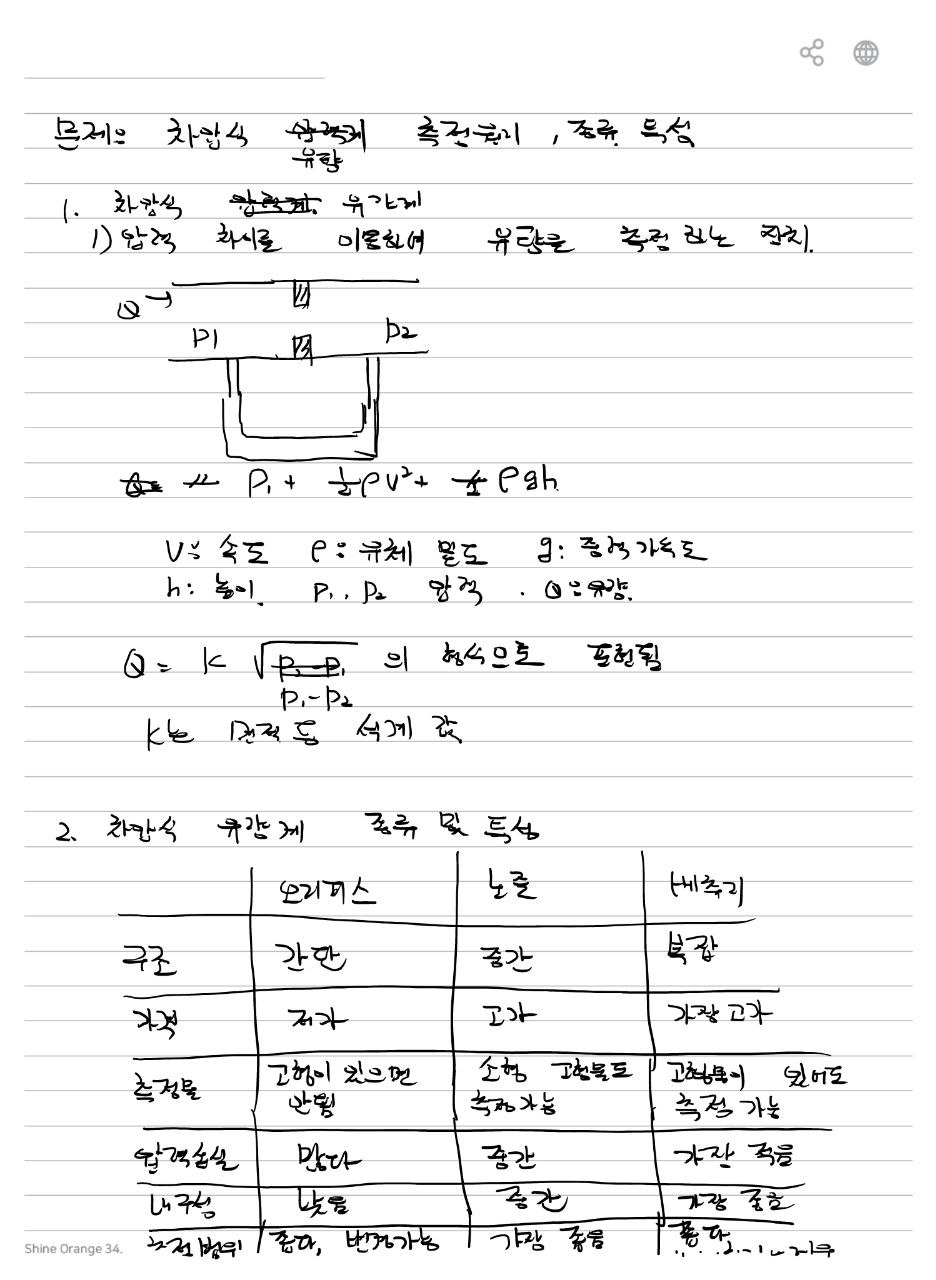 문제 차압식 측정원리, 종류 특성
유량
1. 차압식 유량계
1) 압력 차이를 이용하여 유량을 측정 하는 장치.
Q →
P1 P2
P₁ + ½ρV² + ρgh
V: 속도 ρ: 유체 밀도 g: 중력가속도
h: 높이. P₁, P₂ 압력. Q: 유량.
Q = K √ 의 형식으로 표현됨
P₁-P₂
K는 면적 등 설계 값
2. 차압식 유량계 종류 및 특성
오리피스 노즐 벤츄리
구조 간단 중간 복잡
가격 저가 고가 가장 고가
측정물 고형이 있으면 안됨 소형 고형물도 측정가능 고형물이 있어도 측정 가능
압력손실 많다 중간 가장 적음
내구성 낮음 중간 가장 좋음
측정범위 좁다, 변경가능 가장 좁음 좁다
Shine Orange 34.